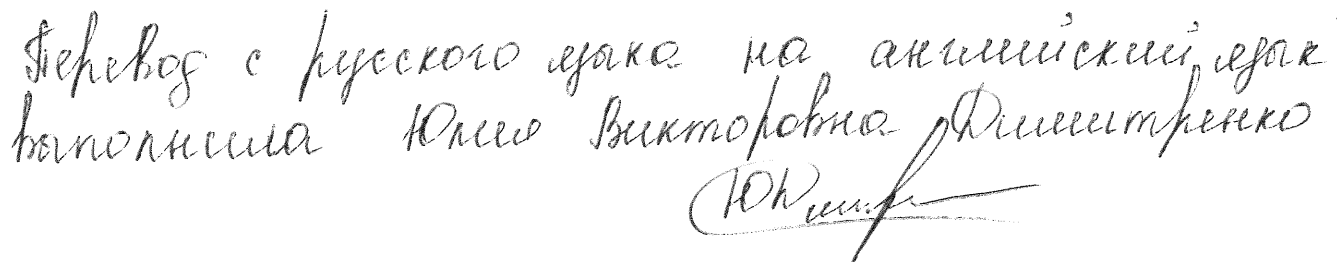 Перевод с русского языка на английский язык
выполнила Юлия Викторовна Димитренко